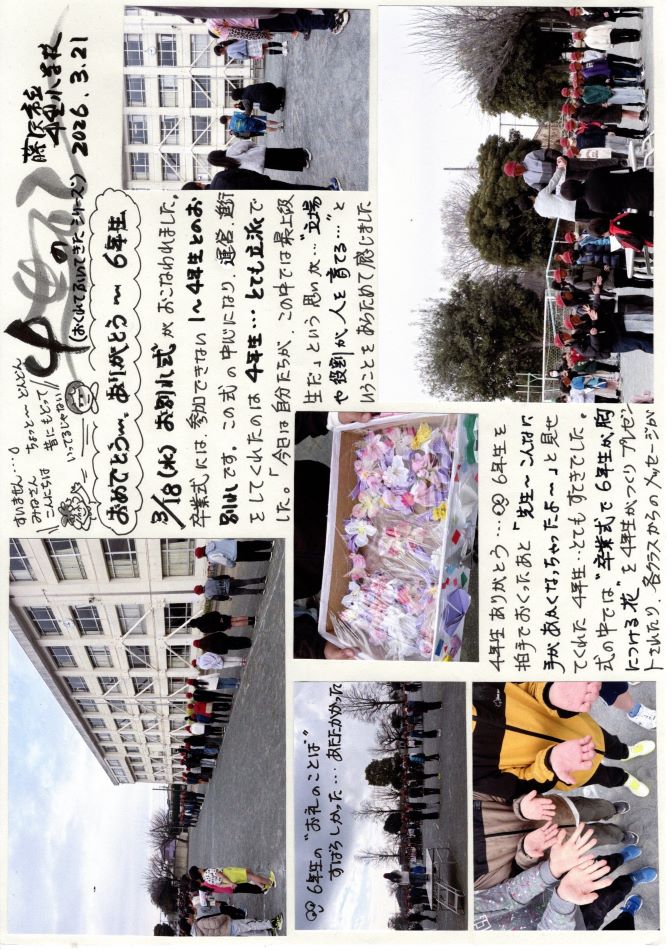 2026.3.21
の
すいません…
みなさん
こんにちは
ちょっと〜 どんどん
昔にもどって
いってるじゃない
おめでとう〜。ありがとう〜 6年生
3/18(水) お別れ式 がおこなわれました。
卒業式には、参加できない 1〜4年生とのお
別れです。この式の中心になり、運営、進行
をしてくれたのは 4年生… とても立派で
した。「今日は自分たちが、この中では最上級
生だ」という思い大…"立場
や役割が、人を育てる…"と
いうことをあらためて感じました
4年生ありがとう… 6年生を
拍手でおくったあと「先生〜こんなに
手があかくなっちゃったよ〜」と見せ
てくれた4年生…とてもすてきでした。
式の中では"卒業式で6年生が、胸
につける花"を4年生がつくりプレゼン
トされたり、各クラスからのメッセージが
6年生の"お礼のことば"
すばらしかった…あたたかかった